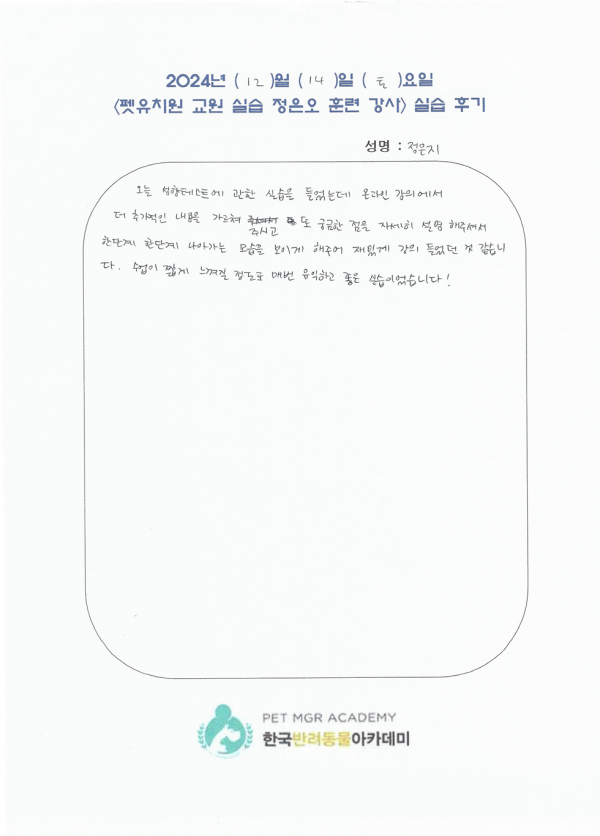 2024년 ( 12 )월 ( 14 )일 ( 토 )요일
<펫유치원 교원 실습 정은오 훈련 강사> 실습 후기
성명 : 정은지
오늘 성향테스트에 관한 실습을 들었는데 온라인 강의에서
더 추가적인 내용을 가르쳐 주시고 또 궁금한 점을 자세히 설명 해주셔서
한단계 한단계 나아가는 모습을 보이게 해주어 재밌게 강의 들었던 것 같습니
다. 수업이 짧게 느껴질 정도로 매번 유익하고 좋은 실습이었습니다!
PET MGR ACADEMY
한국반려동물아카데미